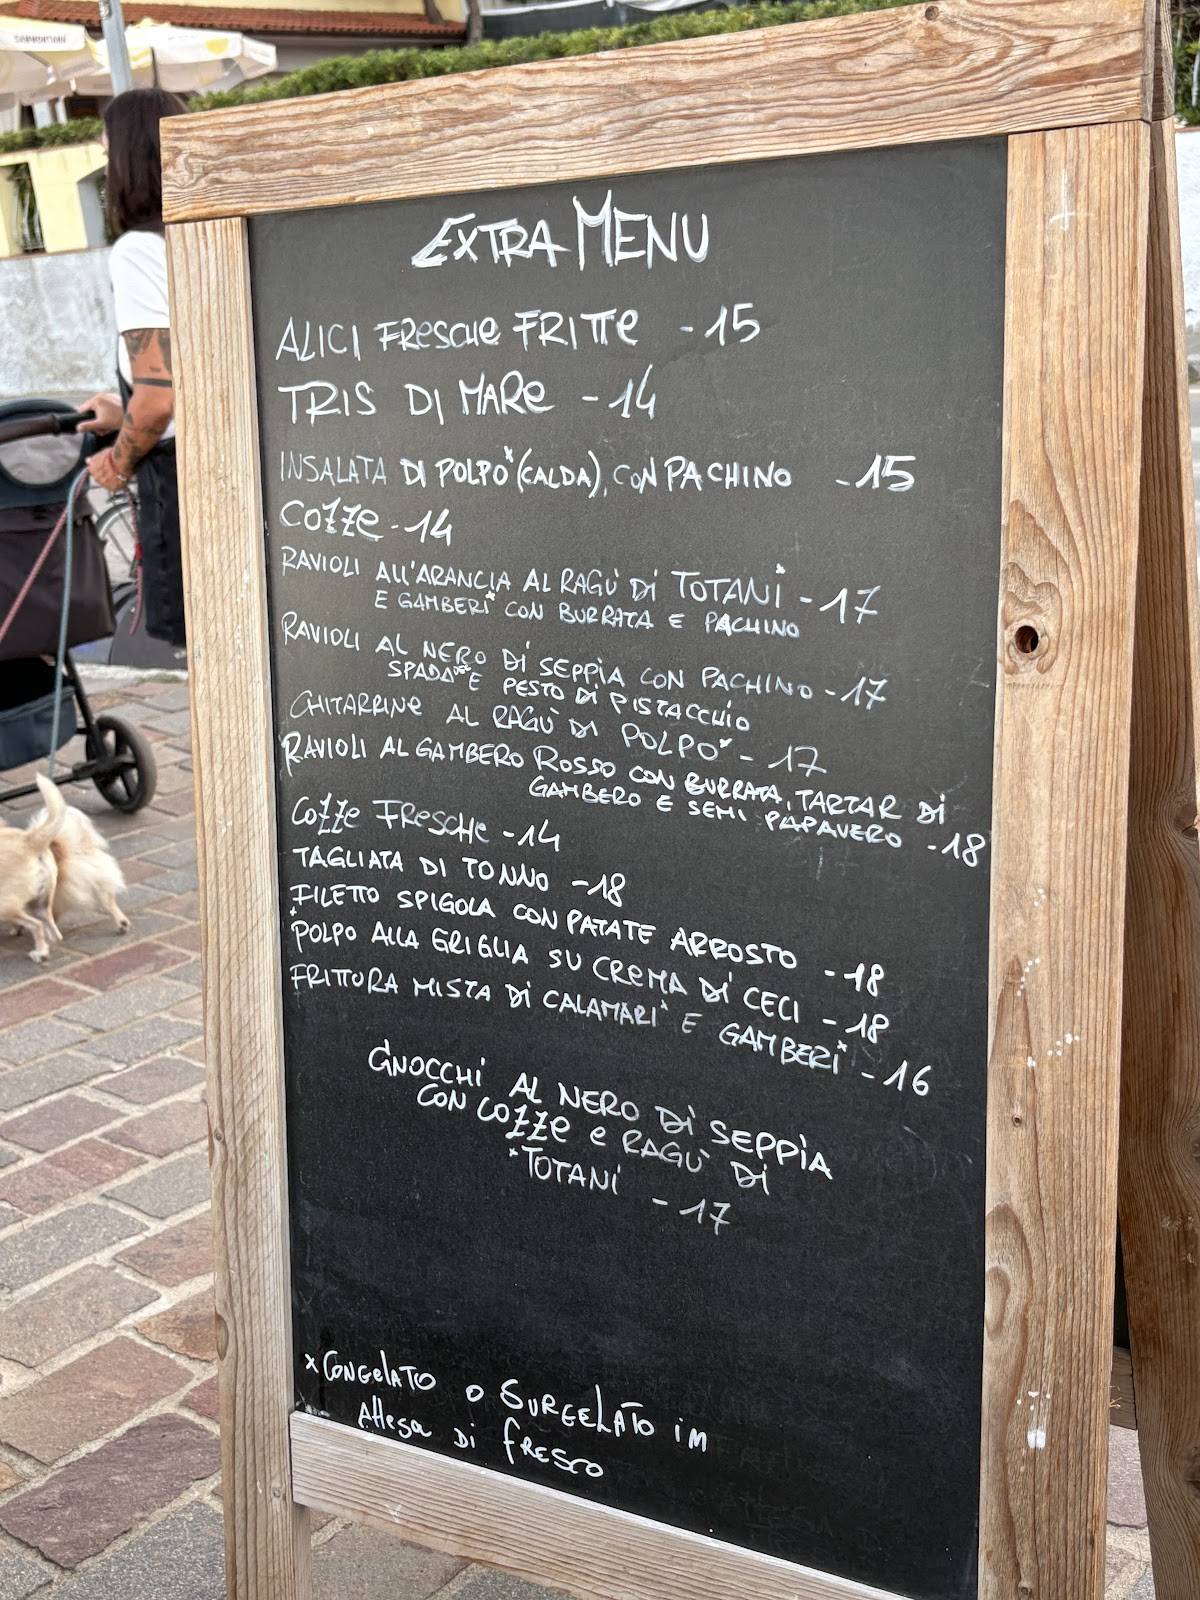 EXTRA MENU
ALICI FRESCHE FRITTE - 15
TRIS DI MARE - 14
INSALATA DI POLPO* (CALDA), CON PACHINO - 15
COZZE - 14
RAVIOLI ALL'ARANCIA AL RAGÙ DI TOTANI* - 17
E GAMBERI* CON BURRATA E PACHINO
RAVIOLI AL NERO DI SEPPIA CON PACHINO - 17
SPADA E PESTO DI PISTACCHIO
CHITARRINE AL RAGÙ DI POLPO* - 17
RAVIOLI AL GAMBERO ROSSO CON BURRATA, TARTAR DI
GAMBERO E SEMI PAPAVERO - 18
COZZE FRESCHE - 14
TAGLIATA DI TONNO - 18
FILETTO SPIGOLA CON PATATE ARROSTO - 18
*POLPO ALLA GRIGLIA SU CREMA DI CECI - 18
FRITTURA MISTA DI CALAMARI* E GAMBERI* - 16
GNOCCHI AL NERO DI SEPPIA
CON COZZE E RAGÙ DI
*TOTANI - 17
x CONGELATO O SURGELATO IM
ATTESA DI FRESCO